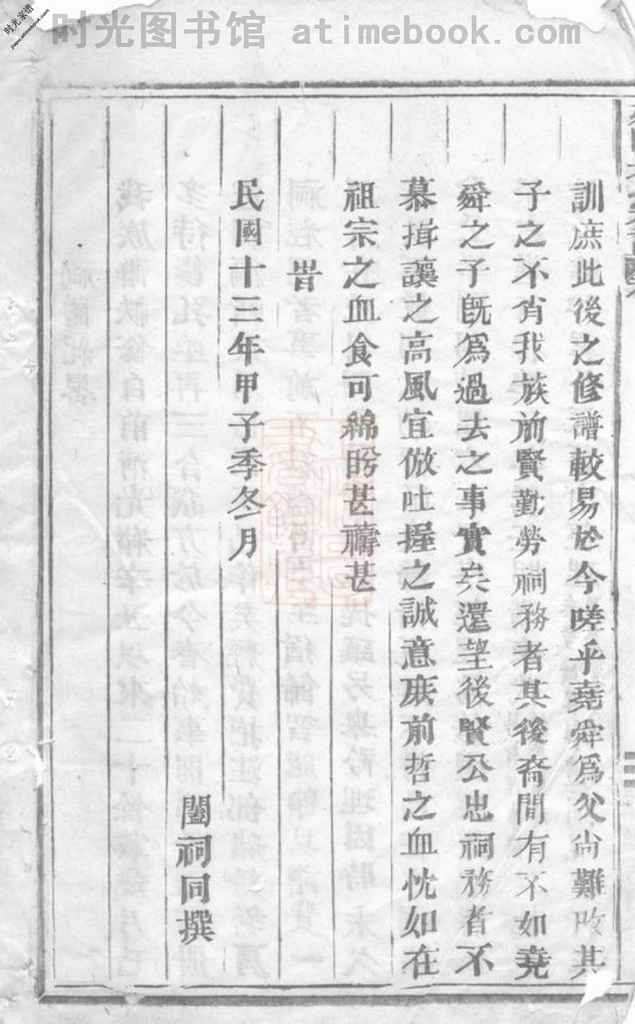 时光图书馆 atimebook.com
时光家谱
訓庶此後之修譜較易於今嗟乎堯舜爲父尙難改其
子之不肖我族前賢勤勞祠務者其後裔間有不如堯
舜之子旣爲過去之事實矣還望後賢公忠祠務者不
慕揖讓之高風宜倣吐握之誠意庶前哲之血忱如在
祖宗之血食可綿盼甚禱甚
旹
民國十三年甲子季冬月
闔祠同撰